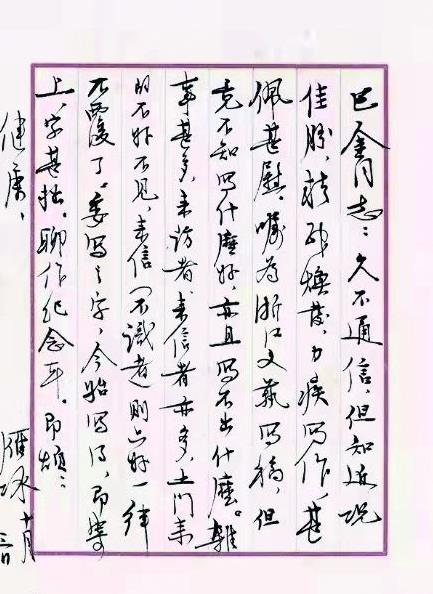 巴金同志：久不通信，但知近况
佳胜，精神焕发，力疾写作，甚
佩甚慰。嘱为浙江文藝写稿，但
竟不知写什麽好，亦且写不出什麽。雜
事甚多，来访者来信者亦多，上门来
的不好不见，来信（不識者）则只好一律
不覆了。委写之字，今始写得，即寄
上，字甚拙。聊作纪念耳。即颂：
健康，
雁冰 十月